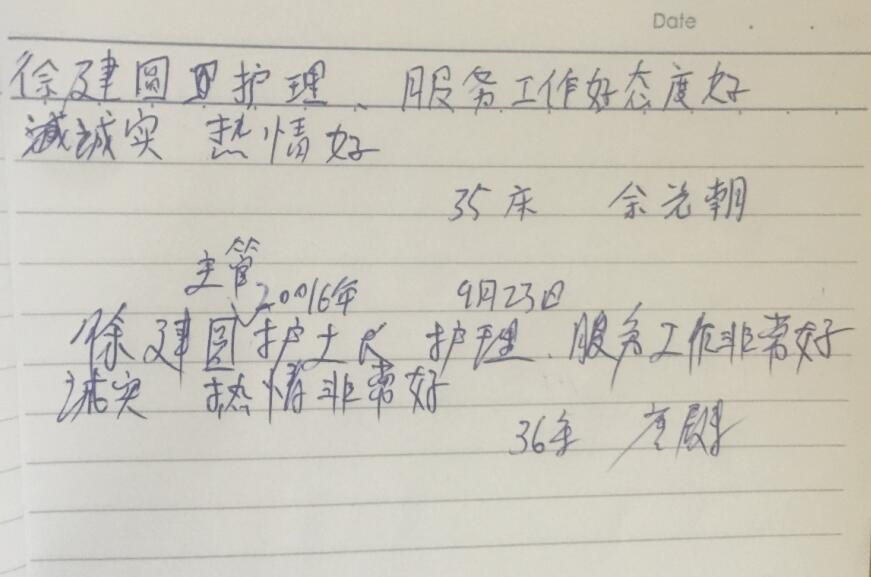 Date . .
徐建圆护理、服务工作好态度好
诚实 热情好
35床 余光朝
主管
2016年 9月23日
徐建圆护士长 护理、服务工作非常好
诚实 热情非常好
36床